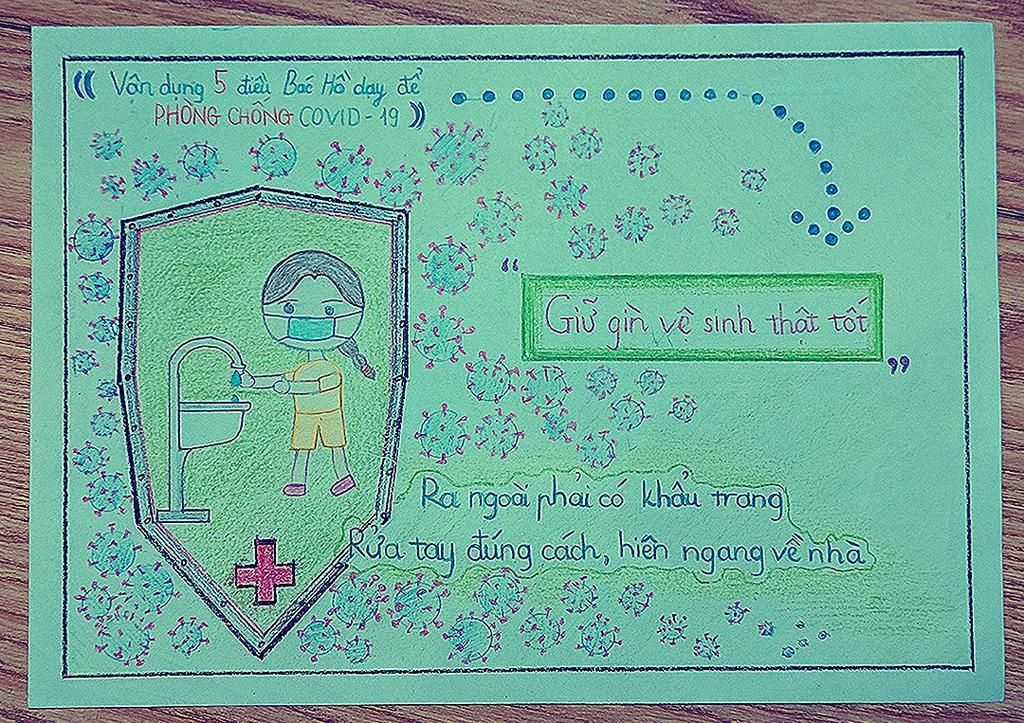 “ Vận dụng 5 điều Bác Hồ dạy để
PHÒNG CHỐNG COVID - 19 ”
“ Giữ gìn vệ sinh thật tốt ”
Ra ngoài phải có khẩu trang
Rửa tay đúng cách, hiên ngang về nhà